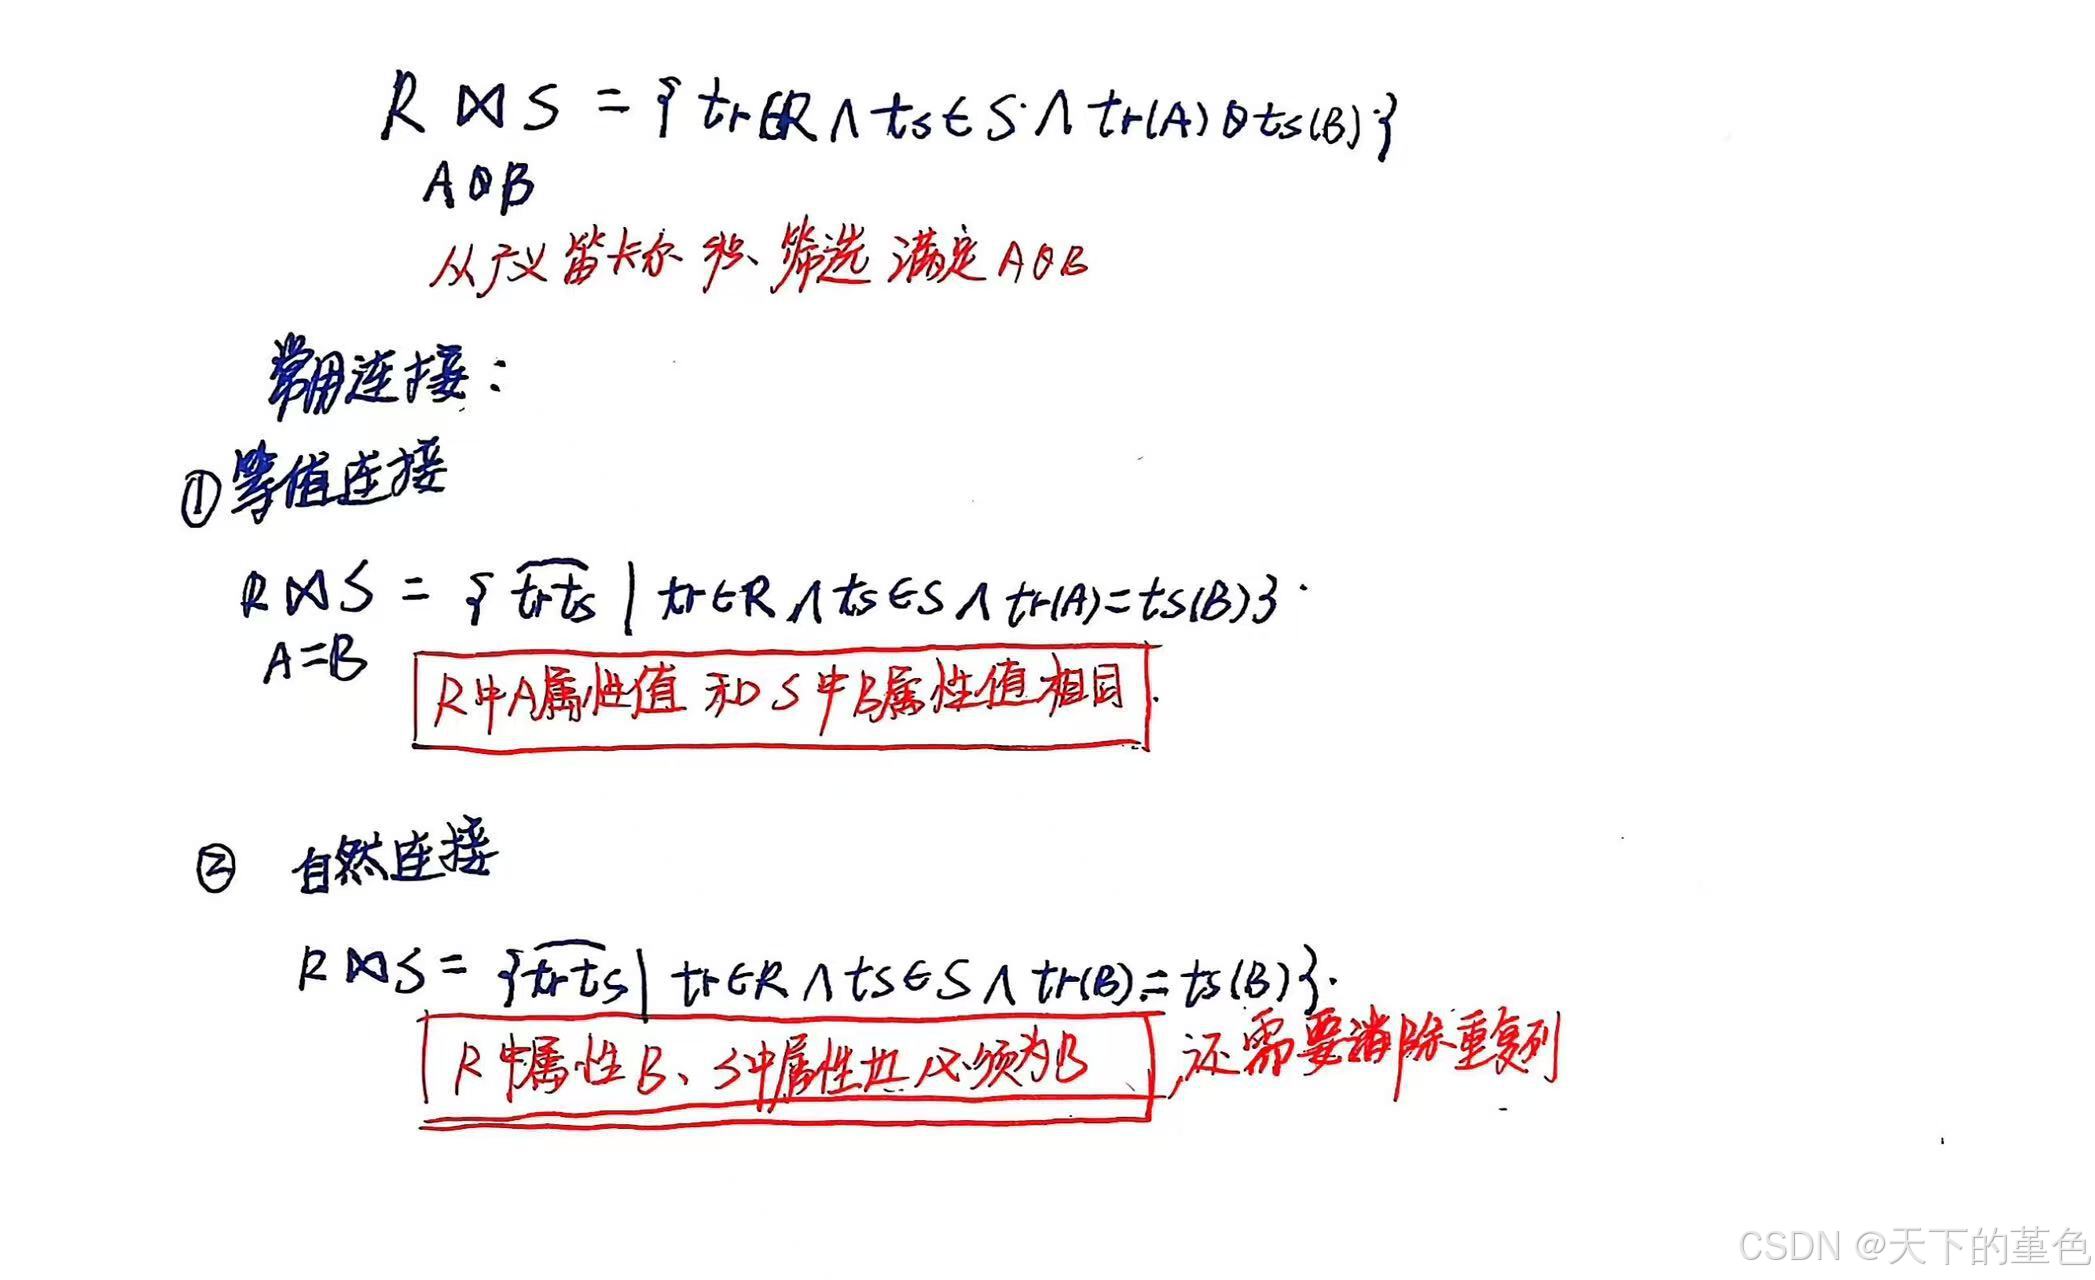 R ⋈ S = { tr∈R ∧ ts∈S ∧ tr(A) θ ts(B) }
AθB
从广义笛卡尔积、筛选满足AθB
常用连接：
① 等值连接
R⋈S = { t͡rts | tr∈R ∧ ts∈S ∧ tr(A)=ts(B)}.
A=B
R中A属性值和S中B属性值相同.
② 自然连接
R⋈S = {t͡rts | tr∈R ∧ ts∈S ∧ tr(B)=ts(B)}.
R中属性B、S中属性也必须为B，还需要消除重复列
CSDN @天下的堇色